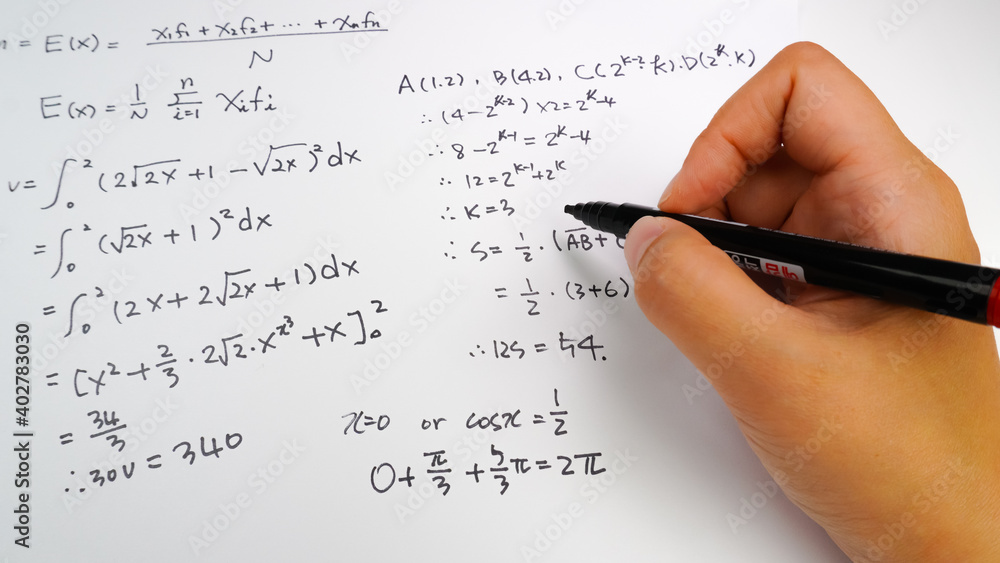 = E(x) = x₁f₁ + x₂f₂ + ⋯ + xₙfₙ / N
E(x) = 1/N Σ i=1 n xifi
v = ∫₀² (2√2x + 1 − √2x)² dx
= ∫₀² (√2x + 1)² dx
= ∫₀² (2x + 2√2x + 1) dx
= [x² + 2/3 · 2√2 · x^x³ + x]₀²
= 34/3
∴ 30V = 340
A(1.2), B(4.2), C(2^k-2 · k). D(2^k. k)
∴ (4 − 2^k-2) × 2 = 2^k − 4
∴ 8 − 2^k-1 = 2^k − 4
∴ 12 = 2^k-1 + 2^k
∴ K = 3
∴ S = 1/2 · (AB +
= 1/2 · (3+6)
∴ 12S = 54.
x=0 or cosx = 1/2
0 + π/3 + 5/3 π = 2π
Adobe Stock | #402783030
Adobe Stock